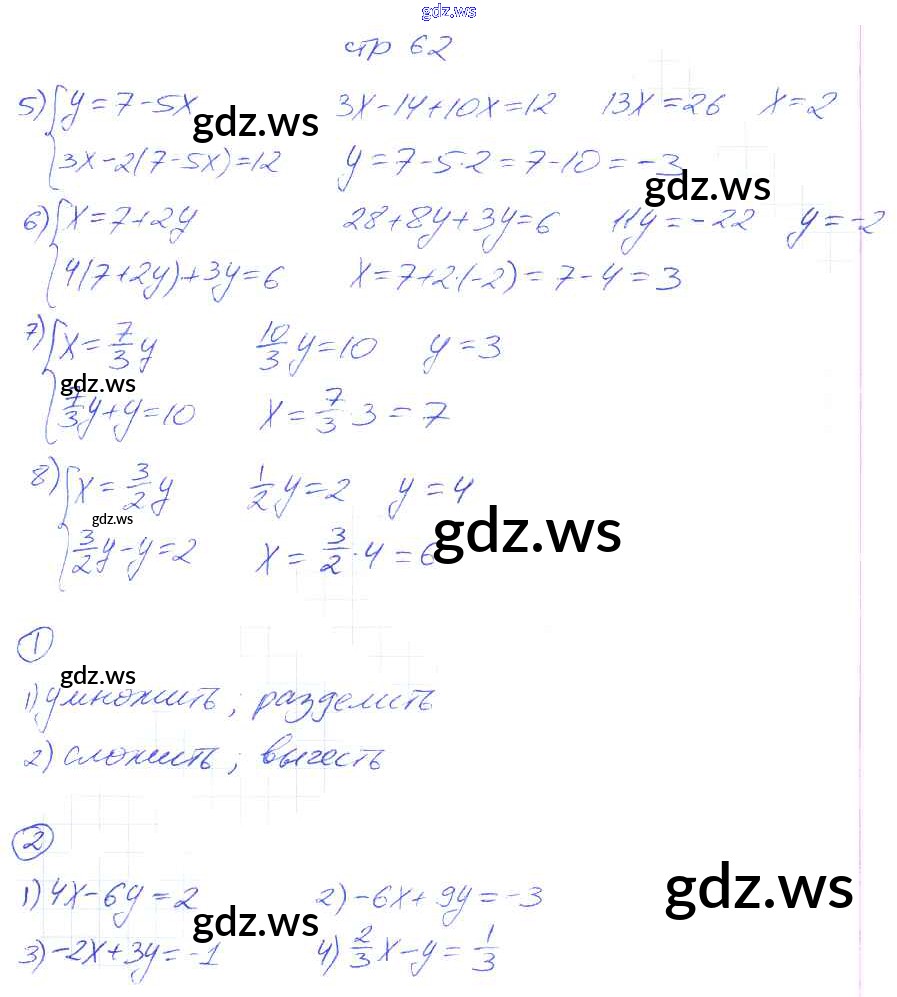 gdz.ws
стр 62
5) { y = 7 - 5x 3x - 14 + 10x = 12 13x = 26 x = 2
gdz.ws
3x - 2(7 - 5x) = 12 y = 7 - 5·2 = 7 - 10 = -3
gdz.ws
6) { x = 7 + 2y 28 + 8y + 3y = 6 11y = -22 y = -2
4(7 + 2y) + 3y = 6 x = 7 + 2·(-2) = 7 - 4 = 3
7) { x = 7/3 y 10/3 y = 10 y = 3
gdz.ws
7/3 y + y = 10 x = 7/3 · 3 = 7
8) { x = 3/2 y 1/2 y = 2 y = 4
gdz.ws
gdz.ws
3/2 y - y = 2 x = 3/2 · 4 = 6
1
gdz.ws
1) умножить ; разделить
2) сложить ; вычесть
2
1) 4x - 6y = 2 2) -6x + 9y = -3
gdz.ws
gdz.ws
3) -2x + 3y = -1 4) 2/3 x - y = 1/3